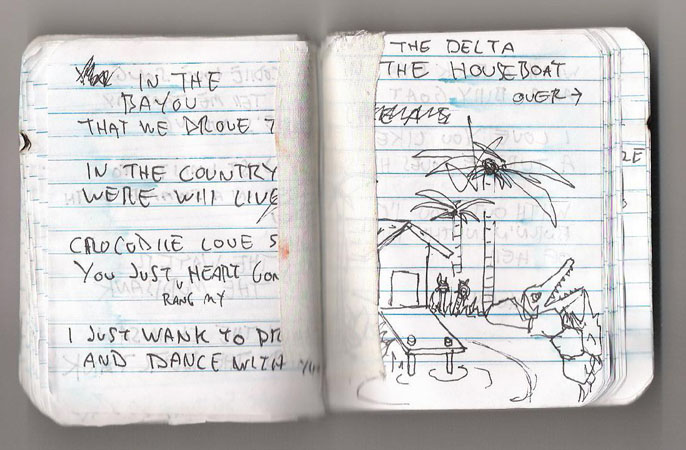 IN THE
BAYOU
THAT WE DROVE T
IN THE COUNTRY
WERE WHI LIVE
CROCODILE LOVE S
YOU JUST HEART GON
RANG MY
I JUST WANK TO DR
AND DANCE WITH YOU
THE DELTA
THE HOUSEBOAT
OVER→